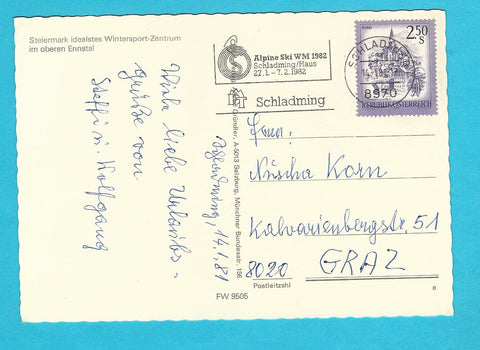 Steiermark idealstes Wintersport-Zentrum
im oberen Ennstal
Viele liebe Urlaubs-
grüße von
Steffi u. Wolfgang
Schladming, 14.1.81
Alpine Ski WM 1982
Schladming/Haus
27.1. - 7.2.1982
Schladming
SCHLADMING
8970
2.50
S
REPUBLIK ÖSTERREICH
Gründler, A-5013 Salzburg, Münchner Bundesstr. 156
FW 9505
Frau
Nuscha Korn
Kalvarienbergstr. 51
8020 GRAZ
Postleitzahl